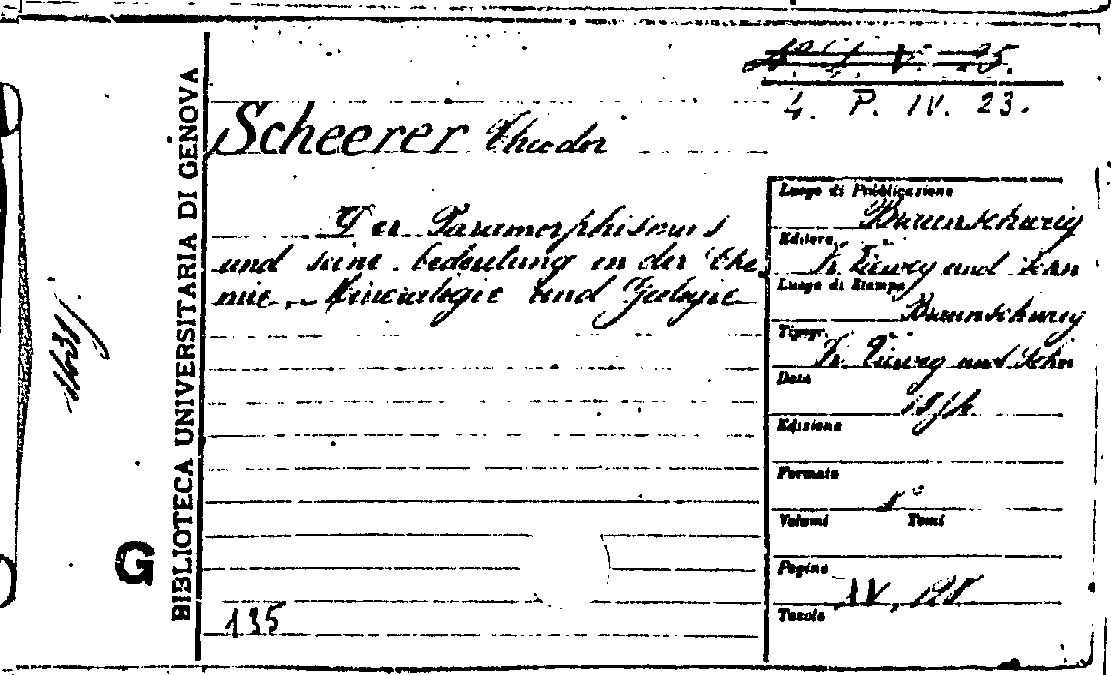 4. P. IV. 23.
Scheerer Theodor
Der Paramorphismus
und seine bedeutung in der Che
mie, Mineralogie und Geologie
Luogo di Pubblicazione
Braunschweig
Editore
Fr. Vieweg und Sohn
Luogo di Stampa
Braunschweig
Tipogr.
Fr. Vieweg und Sohn
Data
Edizione
Formato
8°
Volumi Tomi
Pagine
Tavole
135
BIBLIOTECA UNIVERSITARIA DI GENOVA
G